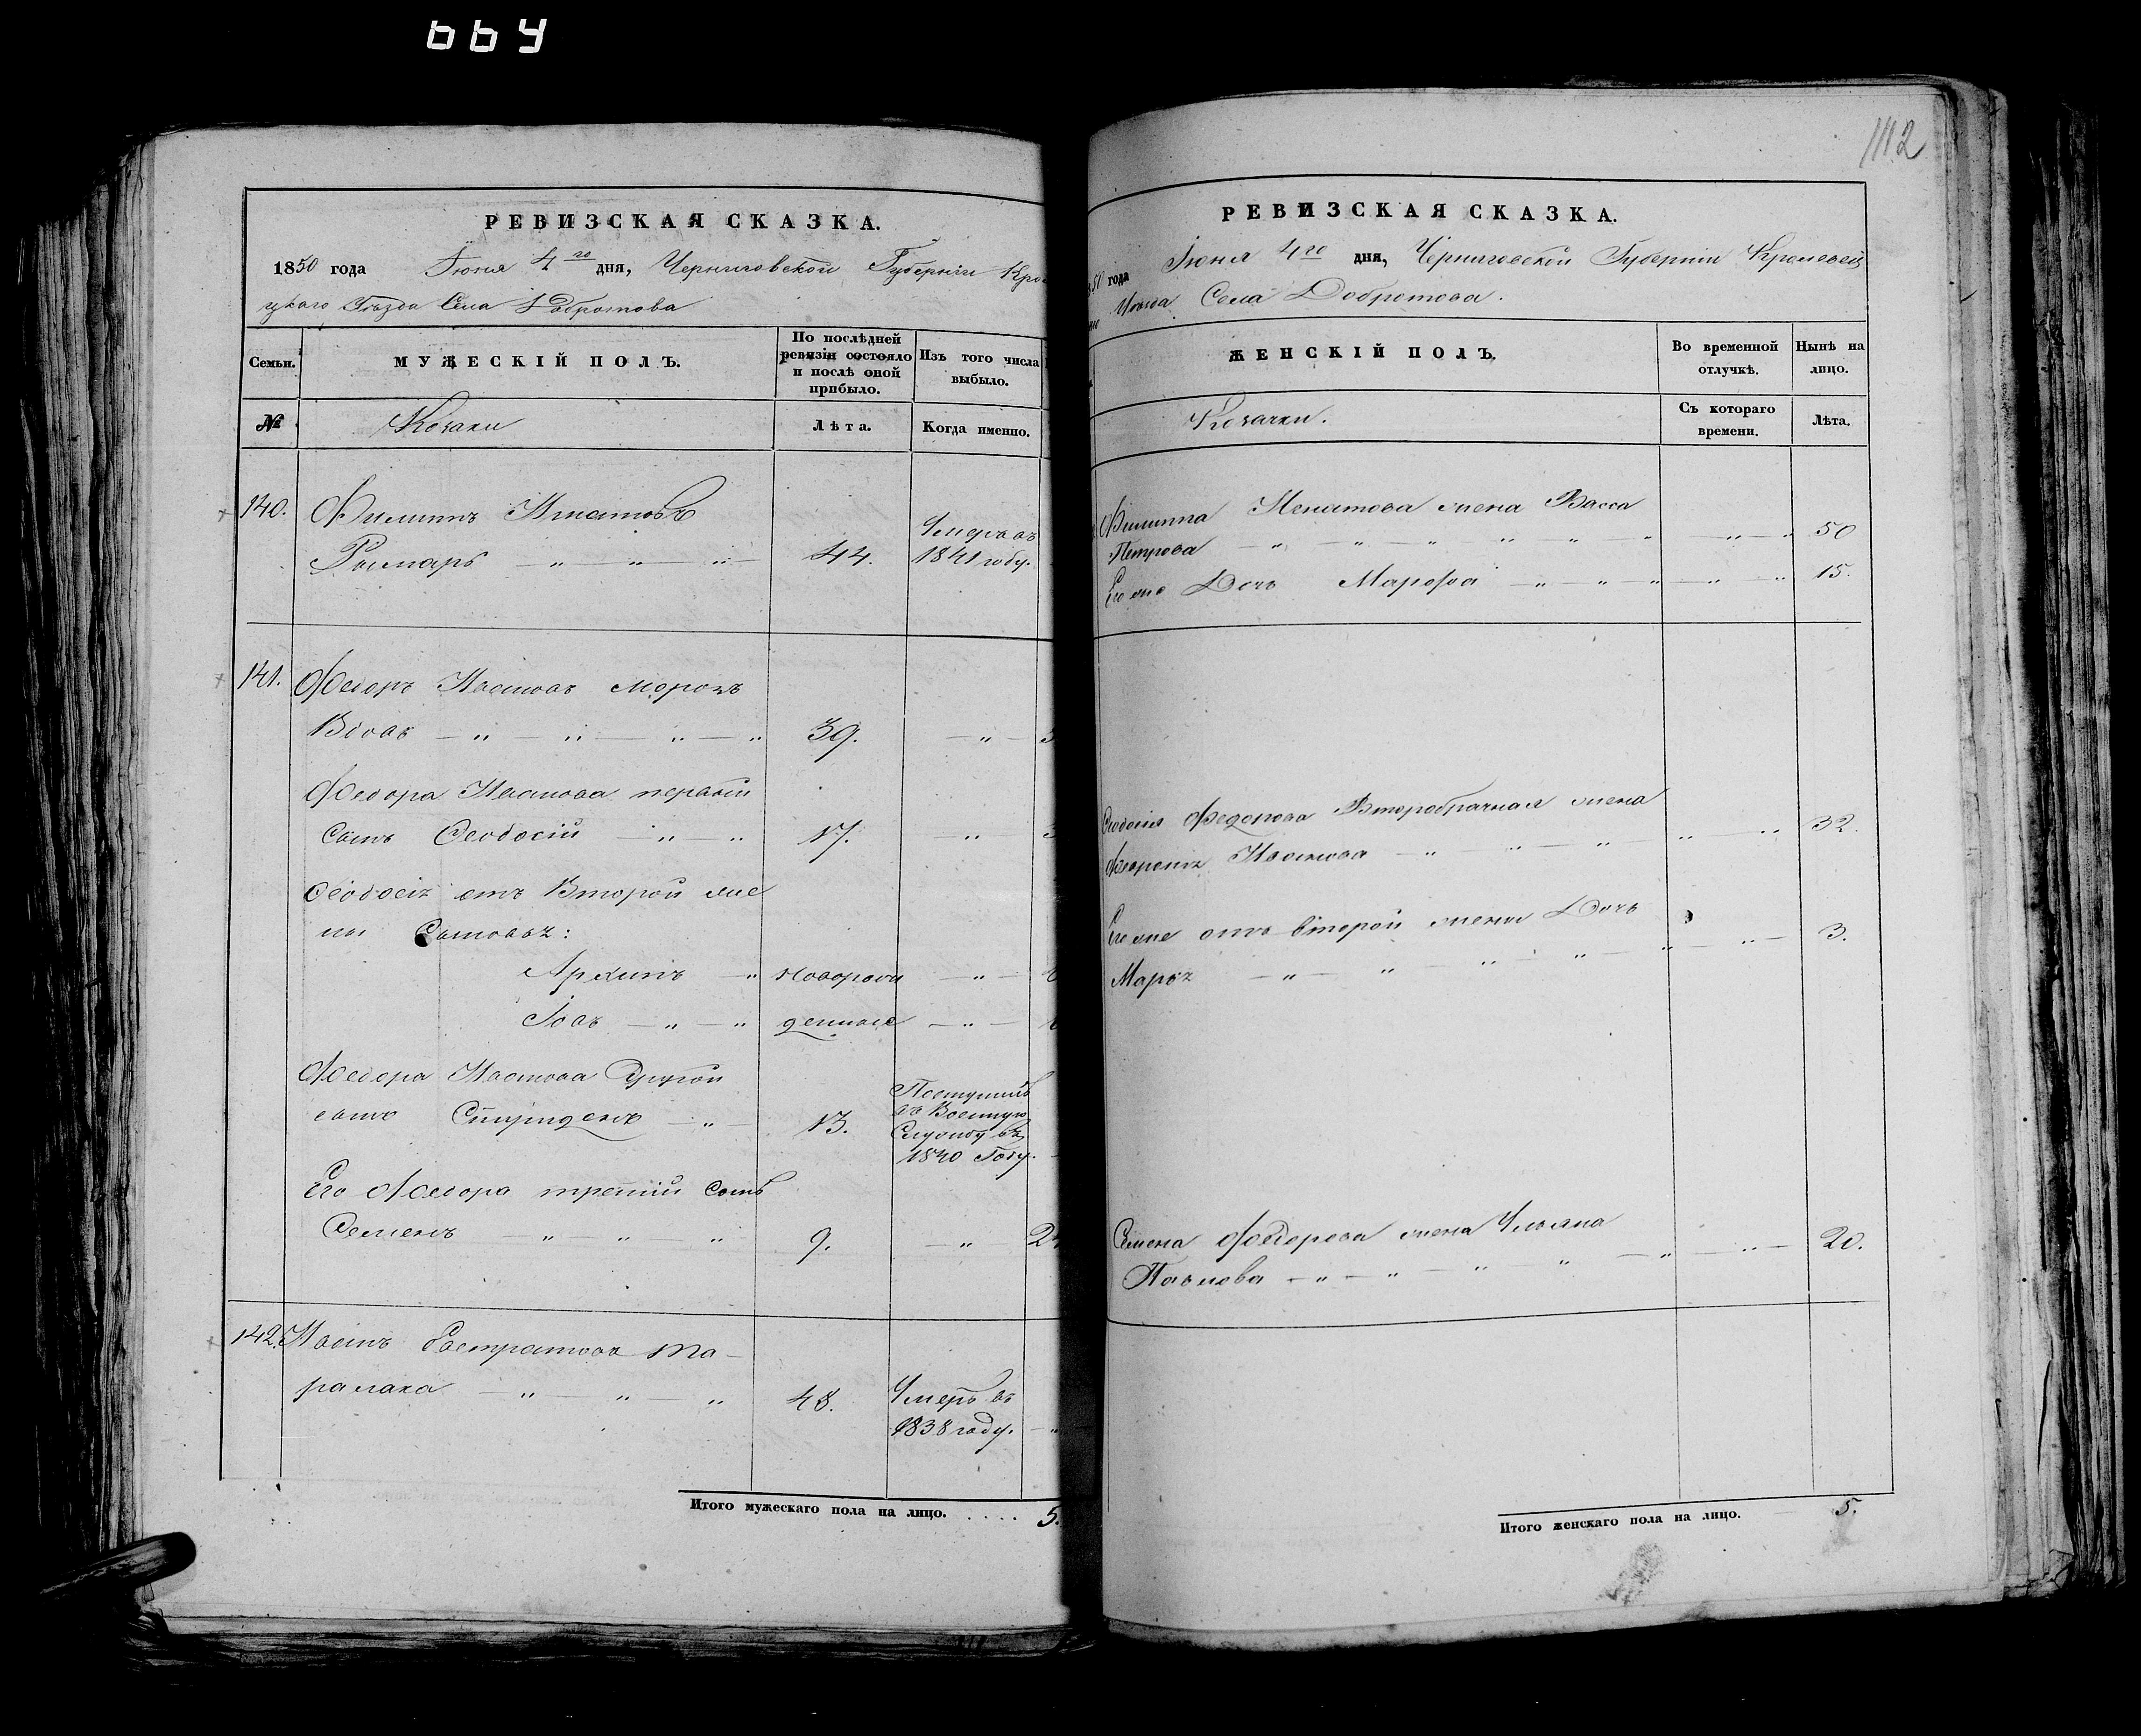 664
РЕВИЗСКАЯ СКАЗКА.
1850 года Іюня 4го дня, Черниговской Губерніи Кро
цкаго Уѣзда Села Добротова
Семьи.
МУЖЕСКІЙ ПОЛЪ.
По послѣдней
ревизіи состояло
и послѣ оной
прибыло.
Изъ того числа
выбыло.
№
Козаки
Лѣта.
Когда именно.
140. Филиппъ Игнатовъ
Умеръ въ
Рымарь — „ — „ — „ — 44. 1841 году.
141. Федоръ Изотовъ
— „ — „ — „ — „ 39. — „ —
Федора Изотова первый
Сынъ Феодосій — „ — „ 17. „
Феодосія отъ Второй же
ны Сыновья:
Архипъ — „ новорож — „ —
Іовъ — „ — „ денные — „ —
Федора Изотова Другой
сынъ Спиридонъ — „ — 13.
Поступилъ
въ Военную
Службу въ
1840 Году.
Его Федора третій сынъ
Семенъ — „ — „ — „ 9. — „ — 2
142. Калистратовъ Та-
ралака — „ — „ — „ 48. Умеръ въ
1838 году. — „
Итого мужескаго пола на лицо. . . . . 5.
1112
РЕВИЗСКАЯ СКАЗКА.
50 года Іюня 4го дня, Черниговской Губерніи Кролевец
Уѣзда Села Добротова.
ЖЕНСКІЙ ПОЛЪ.
Во временной
отлучкѣ.
Нынѣ на
лицо.
Козачки.
Съ котораго
времени.
Лѣта.
Филиппа Игнатова жена Васса
Петрова — „ — „ — „ „ „ „ — „ — „ 50
Его же Дочь Марфа — „ — „ — „ — „ — „ 15.
Феодосія Федорова Второбрачная жена
Изотова — „ — „ — „ — „ — „ 32.
Его же отъ второй жены Дочь
Марья — „ — „ — „ — „ — „ — „ — 3.
Семена Федорова жена Ульяна
Павлова — „ — „ — „ — „ — „ — „ — 20.
Итого женскаго пола на лицо. 5.